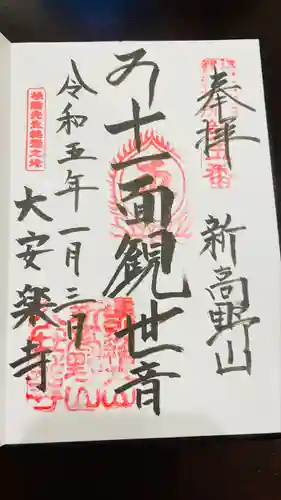 奉拝
新高野山
十一面観世音
令和五年一月三日
大安楽寺